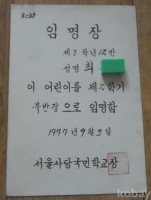 임명장
제5학년12반
성명 최
이 어린이를 제2학기
부반장 으로 임명함
1977년 9월 5일
서울사당국민학교장
kobay